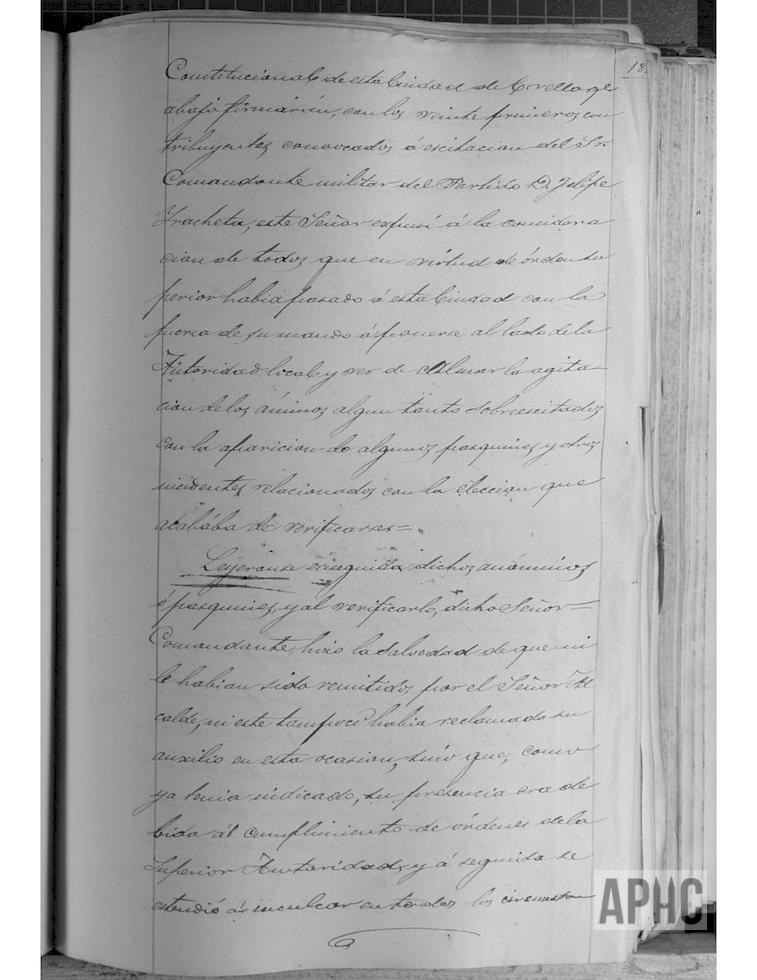 18
Constitucional de esta Ciudad de Corella qe
abajo firmarán, con los veinte primeros con
tribuyentes convocados á escitacion del Sr.
Comandante militar del Partido D. Felipe
Yracheta, este Señor expuso á la considera
cion de todos que en virtud de órden su
perior habia pasado á esta Ciudad con la
fuerza de su mando á ponerse al lado de la
Autoridad local y ver de calmar la agita=
cion de los ánimos algun tanto sobreescitados
con la aparicion de algunos pasquines y otros
incidentes relacionados con la eleccion que
acababa de verificarse=
Leyeronse enseguida dichos anónimos
ó pasquines, y al verificarlo, dicho Señor=
Comandante, hizo la salvedad de que ni
le habian sido remitidos por el Señor Al
calde, ni este tampoco habia reclamado su
auxilio en esta ocasion, sino que, como
ya tenia indicado, su presencia era de
bida al cumplimiento de órdenes de la
Superior Autoridad, y á seguida se
estendió á inculcar en todos los circunstan
APHC